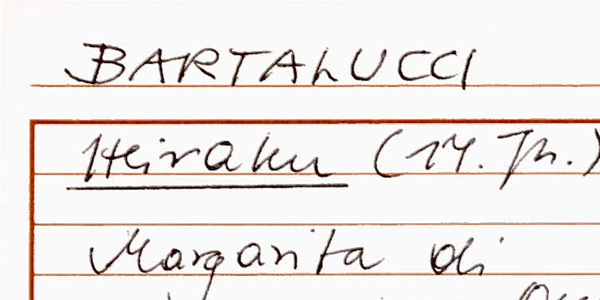 BARTALUCCI
Heiraku (14. Jh.)
Margarita di